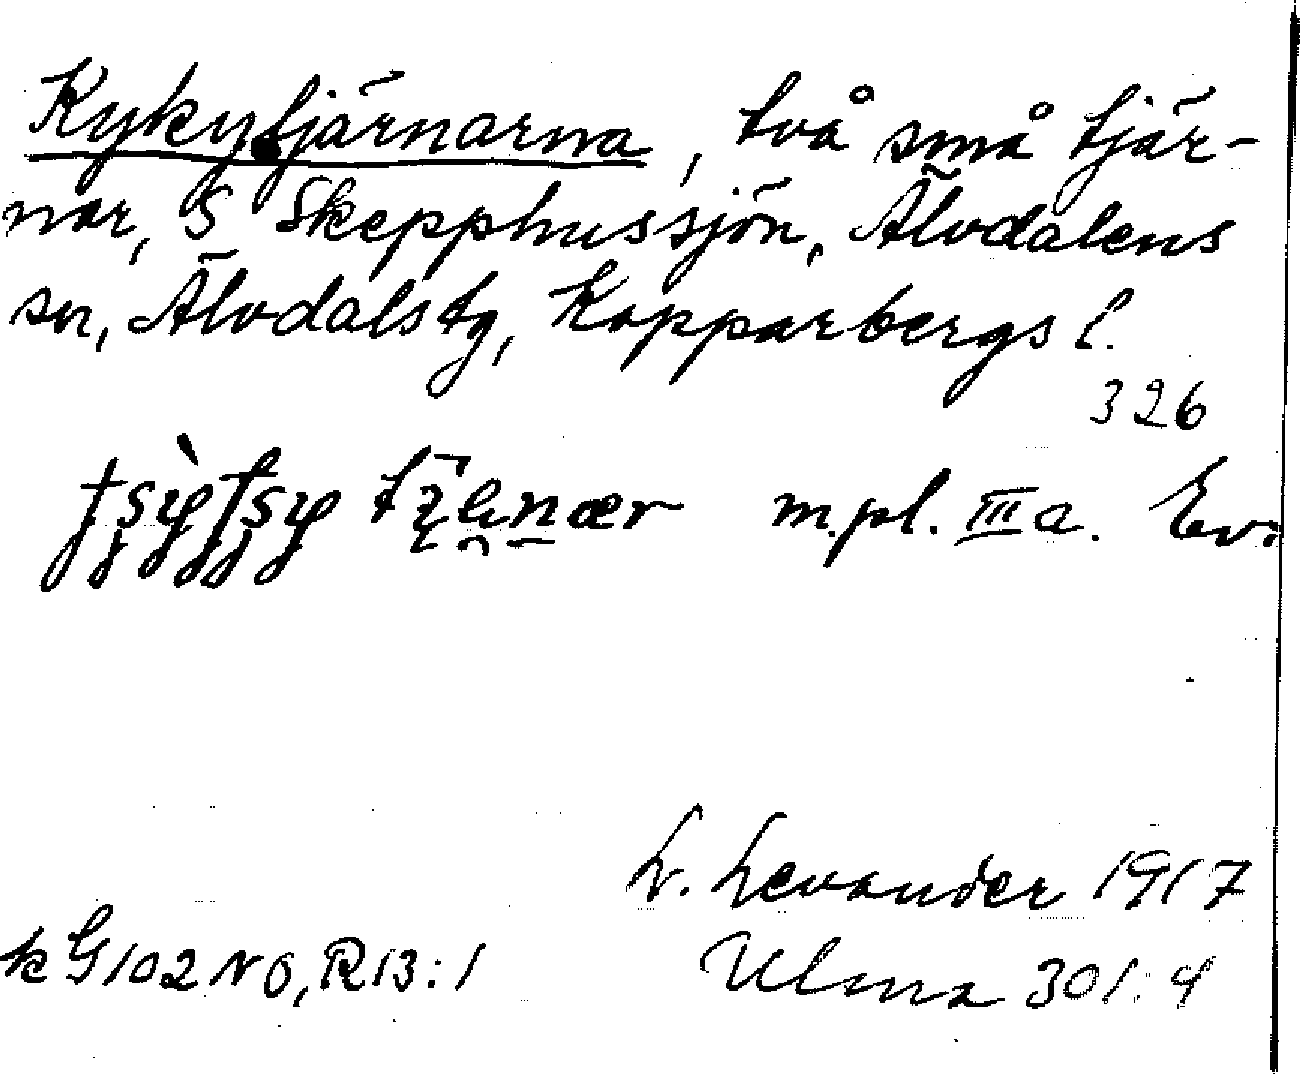 Kykytjärnarna, två små tjär-
nar, S Skepphussjön, Älvdalens
sn, Älvdals tg, Kopparbergs l.
326
m.pl. III a. Ev.
L. Levander 1917
k G 102 NO, R 13:1 Ulma 301:4